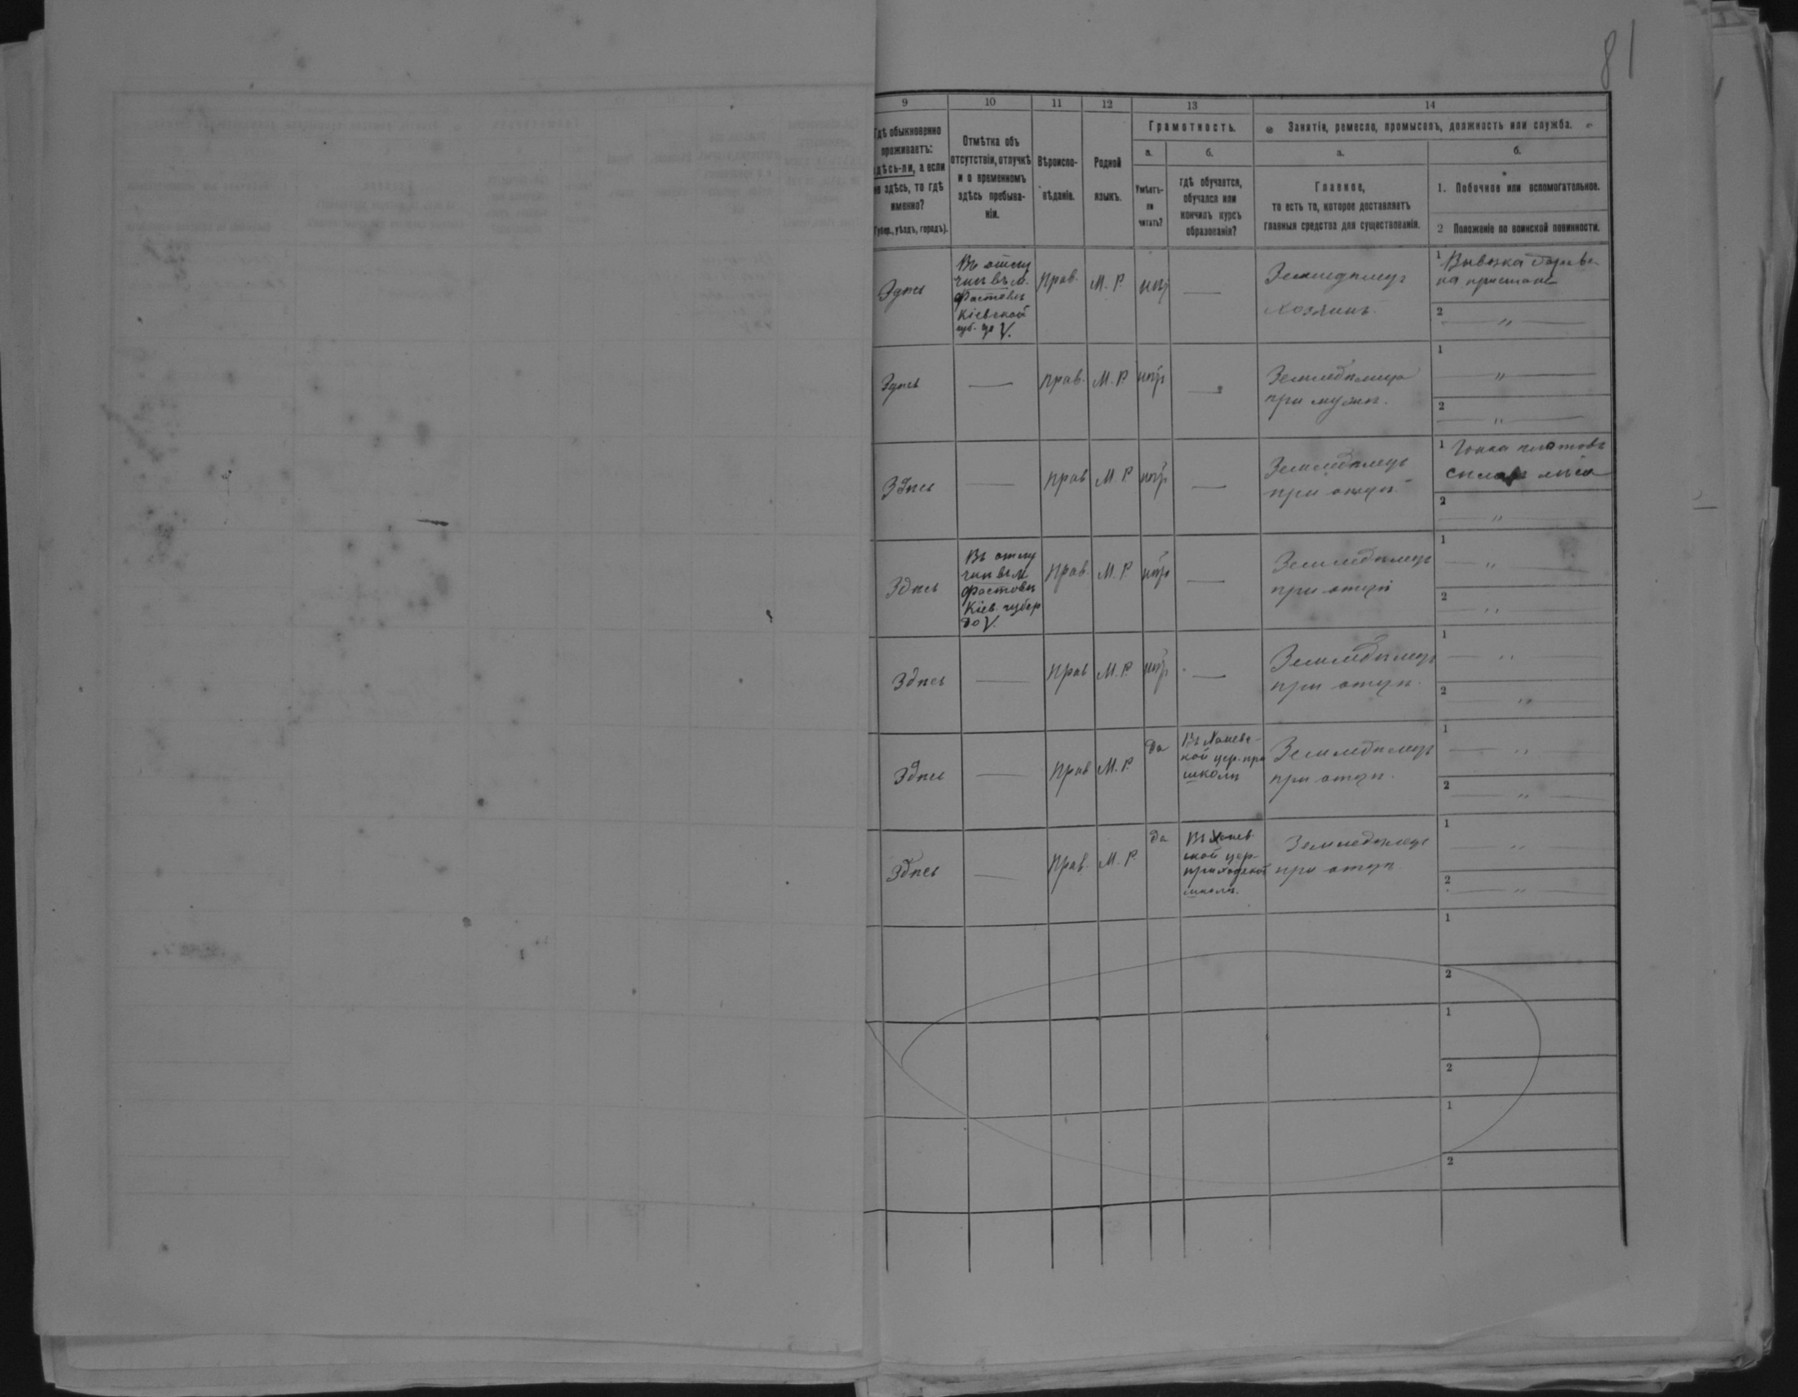 81
9 10 11 12 13 14
Гдѣ обыкновенно проживаетъ: здѣсь-ли, а если не здѣсь, то гдѣ именно? (Губер., уѣздъ, городъ).
Отмѣтка объ отсутствіи, отлучкѣ и о временномъ здѣсь пребываніи.
Вѣроисповѣданіе.
Родной языкъ.
Грамотность.
а.
Умѣетъ-ли читать?
б.
гдѣ обучается, обучался или кончилъ курсъ образованія?
Занятіе, ремесло, промыселъ, должность или служба.
а.
Главное,
то есть то, которое доставляетъ
главныя средства для существованія.
б.
1. Побочное или вспомогательное.
2 Положеніе по воинской повинности.
Здѣсь
Въ отлу
чкѣ въ м.
Фастовѣ
Кіевской
губ. до V.
Прав. М. Р. нѣт —
Земледѣлец
хозяинъ
1 Вывозка
на пристань
2 — " —
Здѣсь — Прав. М. Р. нѣт —
при мужѣ.
1 — " —
2 — " —
Здѣсь — Прав М. Р нѣт —
Земледѣлецъ
при отцѣ
1 Гонка плотовъ
лѣса
2 — " —
Здѣсь
Въ отлу
чкѣ в м.
Фастовѣ
Кіев. губер
до V.
Прав. М. Р. нѣт —
Земледѣлецъ
при отцѣ
1 — " —
2 — " —
Здѣсь — Прав М. Р. нѣт —
Земледѣлецъ
при отцѣ.
1 — " —
2 — " —
Здѣсь — Прав М. Р. да
кой цер. при
школѣ
Земледѣлецъ
при отцѣ.
1 — " —
2 — " —
Здѣсь — Прав. М. Р. да
ской цер-
приходской
школѣ.
Земледѣлецъ
при отцѣ
1 — " —
2 — " —
1
2
1
2
1
2